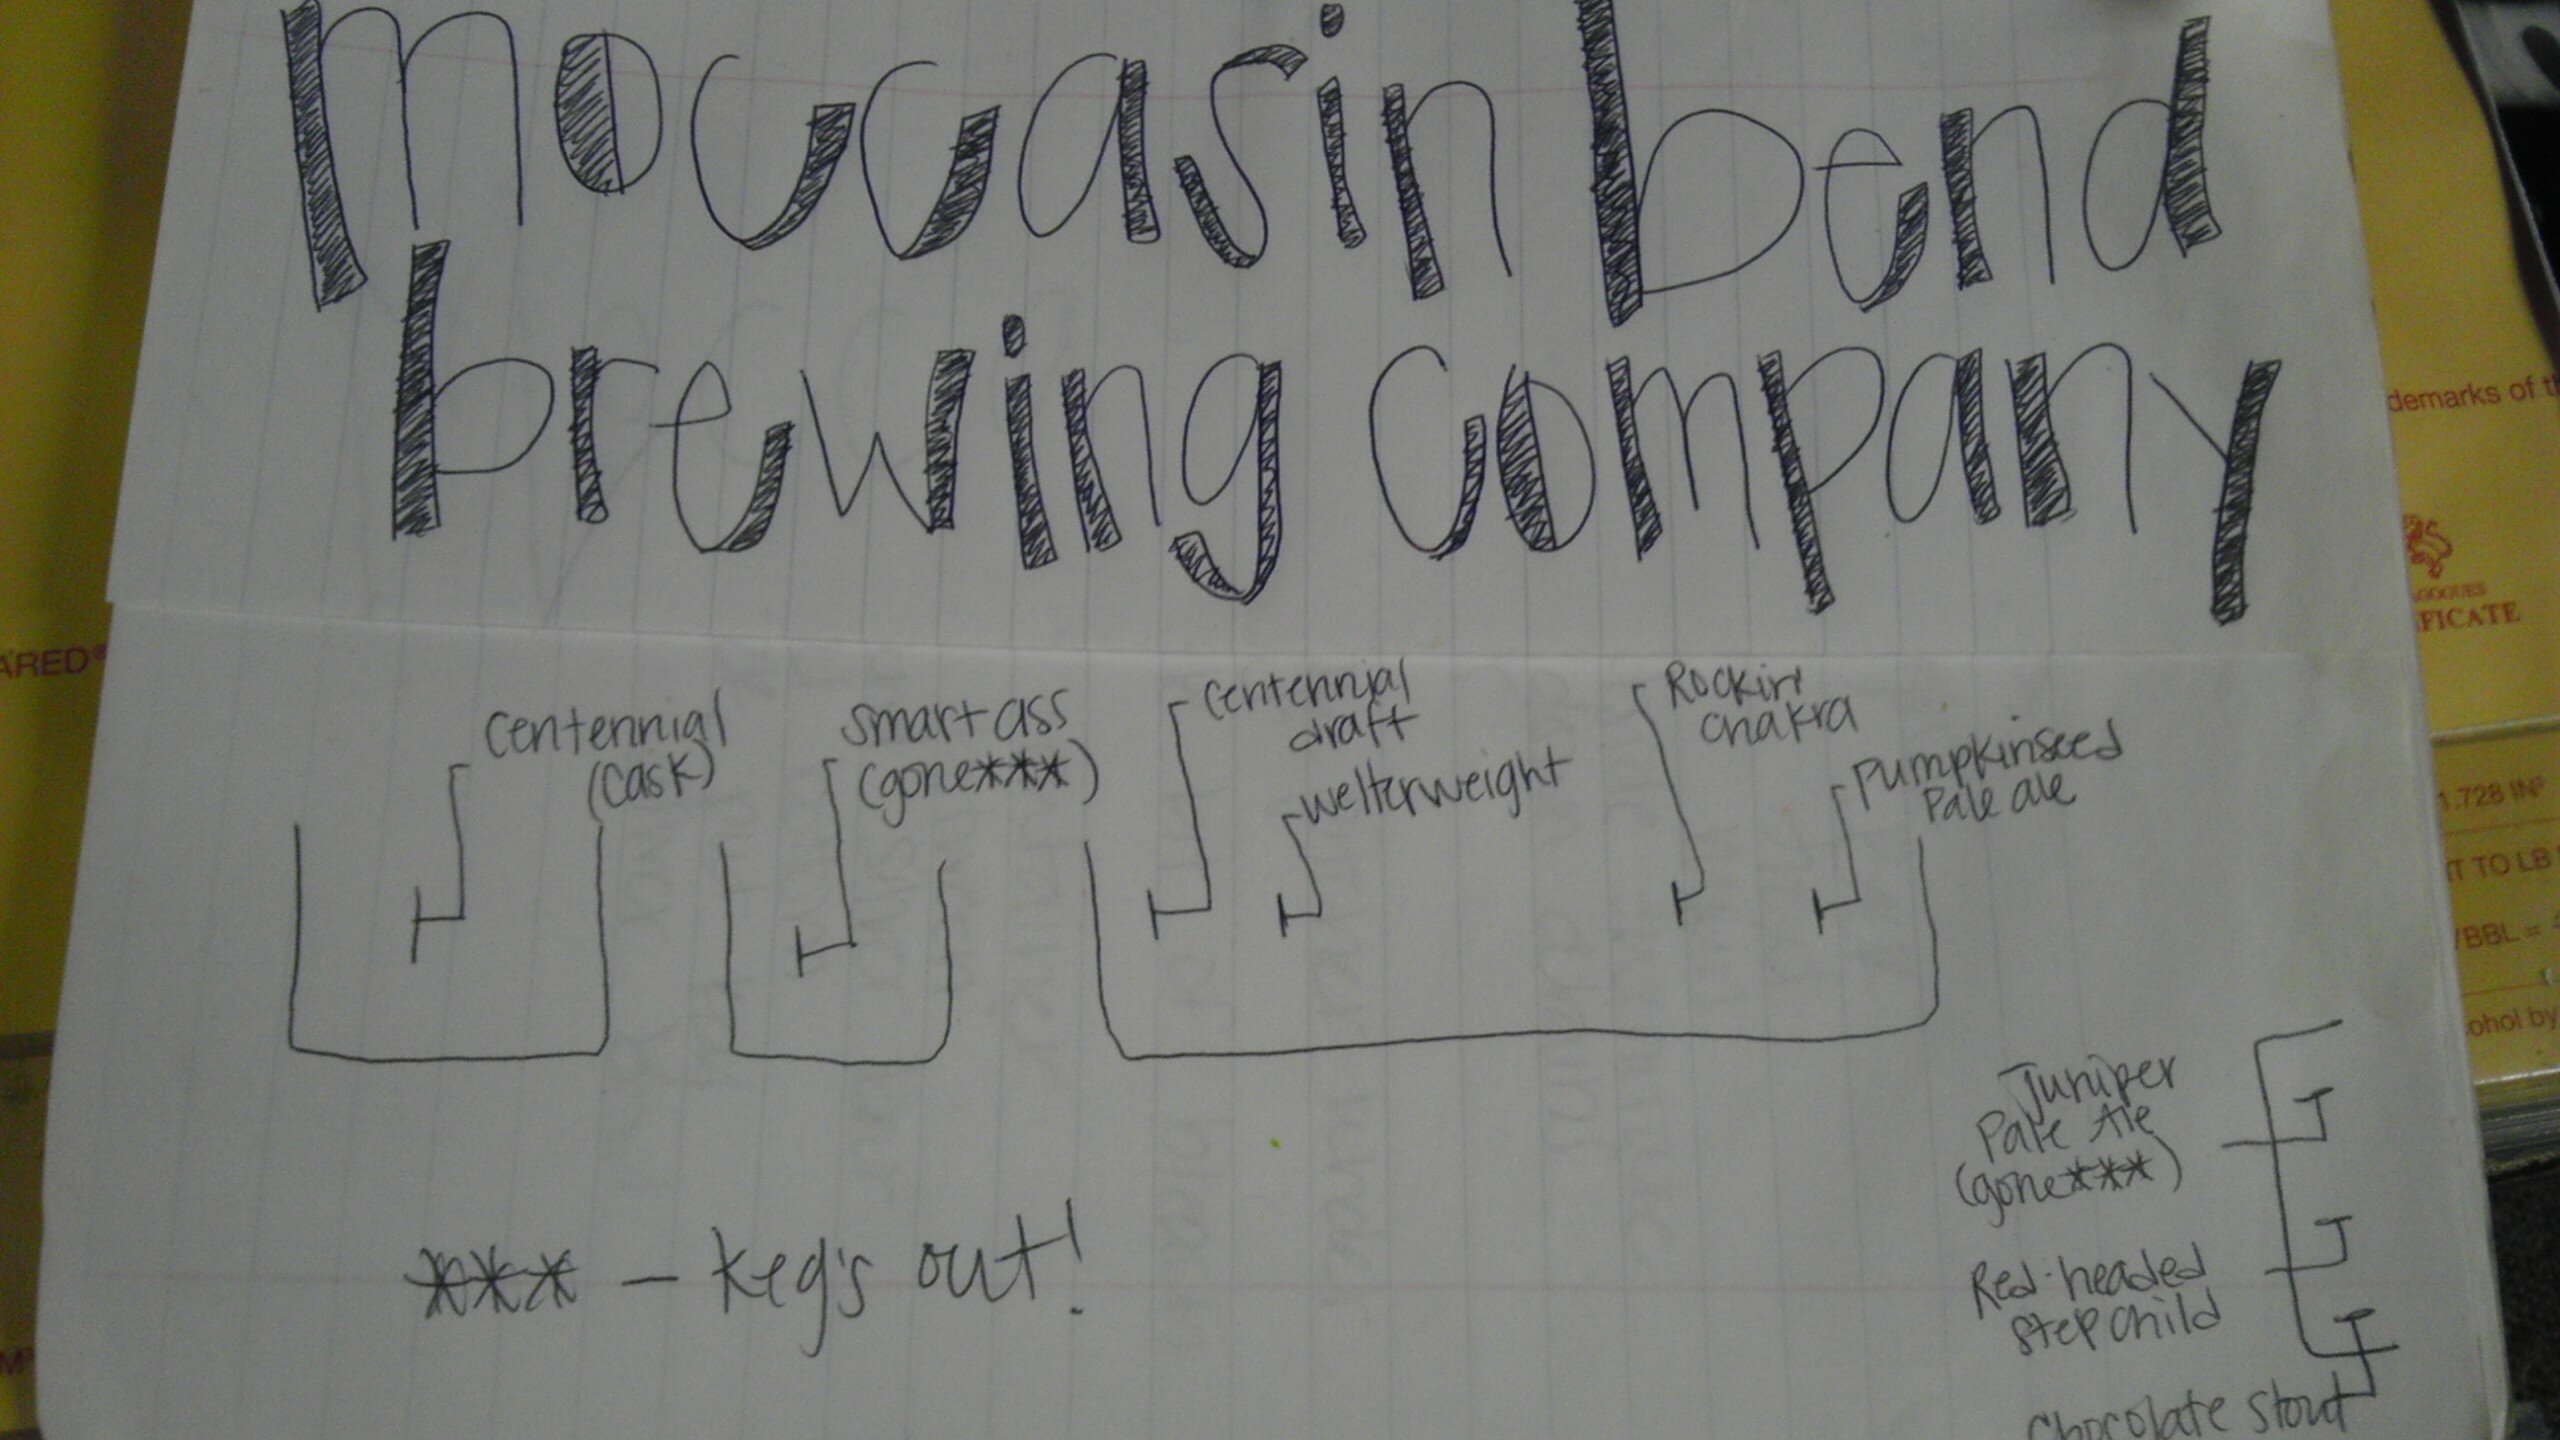 moccasin bend
brewing company
ARED®
demarks of th
FICATE
1.728 IN³
T TO LB
/BBL =
ohol by
centennial
(cask)
smart ass
(gone***)
centennial
draft
welterweight
Rockin
chakra
pumpkinseed
Pale ale
Juniper
Pale Ale
(gone***)
Red-headed
stepchild
chocolate stout
*** - keg's out!